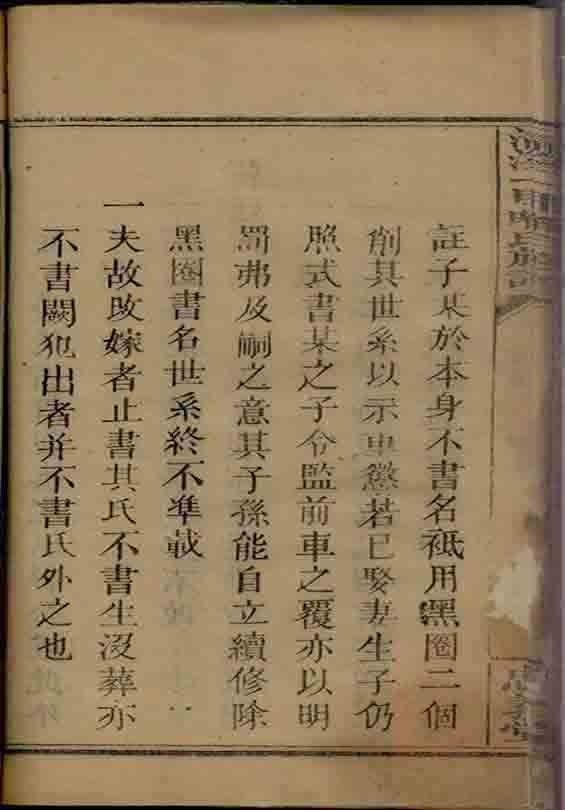 註子某於本身不書名祗用黑圈二個
削其世系以示重懲若已娶妻生子仍
照式書某之子令監前車之覆亦以明
罰弗及嗣之意其子孫能自立續修除
黑圈書名世系終不準載
一夫故改嫁者止書其氏不書生沒葬亦
不書闕犯出者并不書氏外之也